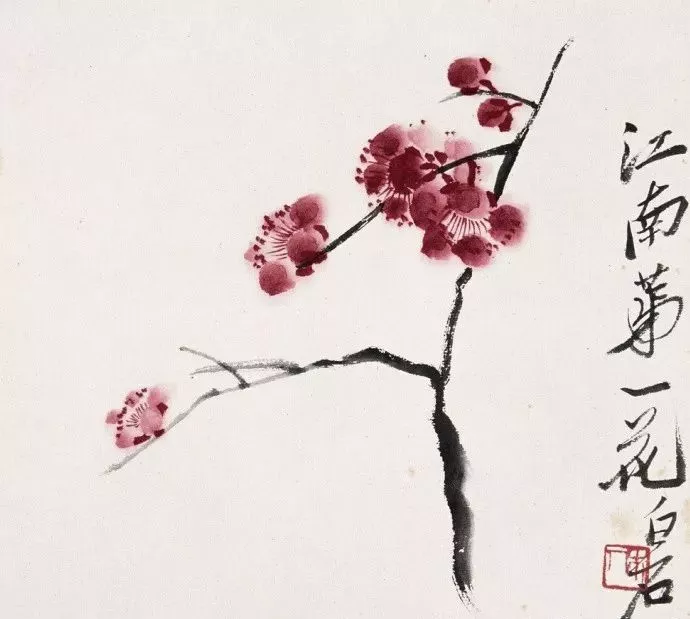 江南第一花白石